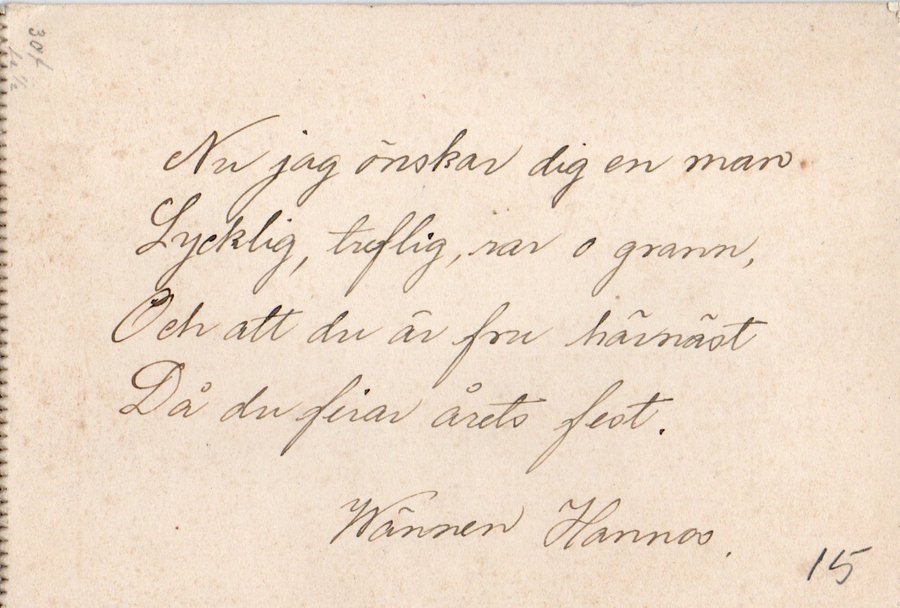 Nu jag önskar dig en man
Lycklig, treflig, rar o grann,
Och att du är fru härnäst
Då du firar årets fest.
Wännen Hannes.
15